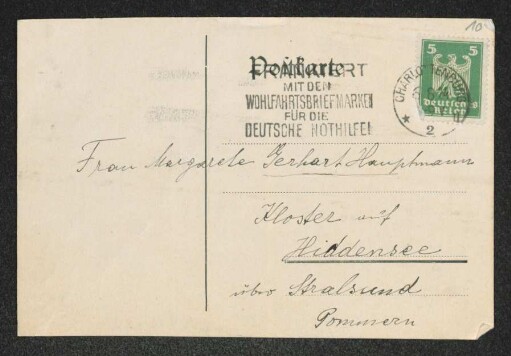 10.
Postkarte
FRANKIERT
MIT DEN
WOHLFAHRTSBRIEFMARKEN
FÜR DIE
DEUTSCHE NOTHILFE!
5 5
Deutsches
Reich
2
Frau Margarete Gerhart Hauptmann
Kloster auf
Hiddensee
über Stralsund
Pommern